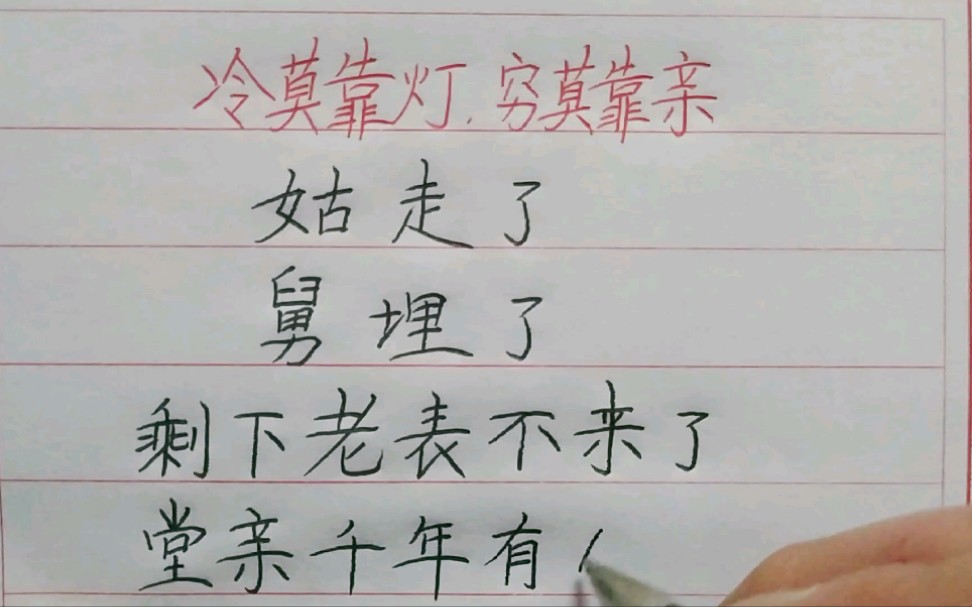 冷莫靠灯，穷莫靠亲
姑走了
舅埋了
剩下老表不来了
堂亲千年有